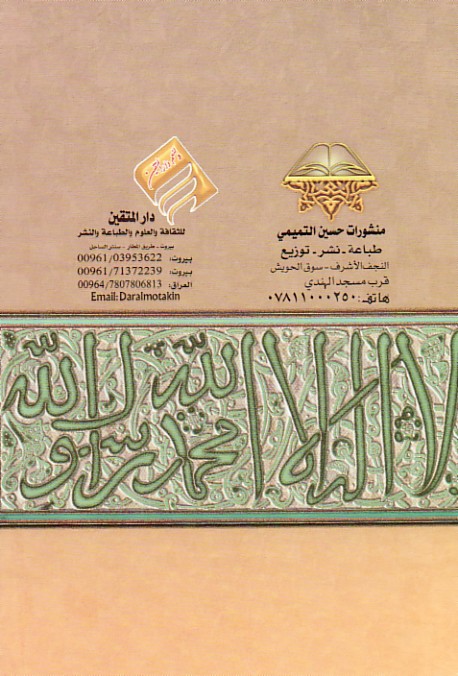 منشورات حسين التميمي
طباعة - نشر - توزيع
النجف الأشرف - سوق الحويش
قرب مسجد الهندي
هاتف: ٠٧٨١١٠٠٠٢٥٠
دار المتقين
للثقافة والعلوم والطباعة والنشر
بيروت - طريق المطار - سنتر الساحل
بيروت: 00961/03953622
بيروت: 00961/71372239
العراق: 00964/7807806813
Email: Daralmotakin
لا اله الا الله محمد رسول الله